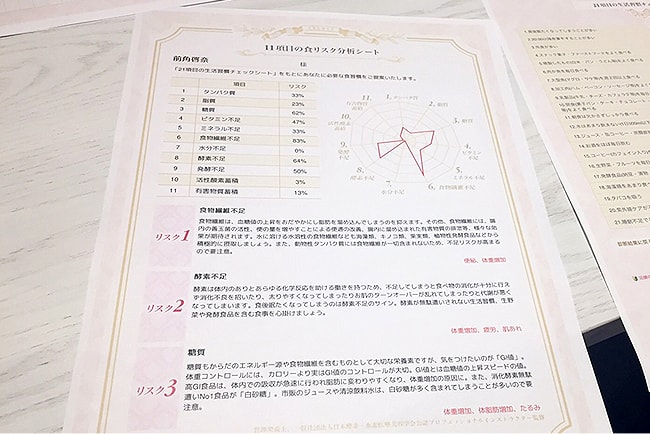 11項目の食リスク分析シート
前角啓奈 様
「21項目の生活習慣チェックシート」をもとにあなたに必要な食習慣をご提案いたします。
項目 リスク
1 タンパク質 33%
2 脂質 23%
3 糖質 62%
4 ビタミン不足 47%
5 ミネラル不足 33%
6 食物繊維不足 83%
7 水分不足 0%
8 酵素不足 64%
9 発酵不足 50%
10 活性酸素蓄積 3%
11 有害物質蓄積 13%
1. タンパク質
2. 脂質
3. 糖質
4. ビタミン不足
5. ミネラル不足
6. 食物繊維不足
7. 水分不足
8. 酵素不足
9. 発酵不足
10. 活性酸素蓄積
11. 有害物質蓄積
リスク1
食物繊維不足
食物繊維は、血糖値の上昇をおだやかにし脂肪を溜め込んでしまうのを抑えます。その他、食物繊維には、腸
内の善玉菌の活性、便の量を増やすことによる便通の改善、腸内に溜め込まれた有害物質の排泄等、様々な効
果が期待されます。水に溶ける水溶性の食物繊維なども海藻類、キノコ類、果実類、植物性発酵食品などから
積極的に摂取しましょう。また、動物性タンパク質には食物繊維が一切含まれないため、不足リスクが高まる
ので要注意。
便秘、体重増加
リスク2
酵素不足
酵素は体内のありとあらゆる化学反応を助ける働きを持つため、不足してしまうと食べ物の消化が十分に行え
ず消化不良を招いたり、太りやすくなってしまったりお肌のターンオーバーが乱れてしまったりと代謝が悪く
なってしまいます。食後眠たくなってしまうのは酵素不足のサイン。酵素が無駄遣いされない生活習慣、生野
菜や発酵食品を含む食事を心掛けましょう。
体重増加、疲労、肌あれ
リスク3
糖質
糖質もからだのエネルギー源や食物繊維を含むものとして大切な栄養素ですが、気をつけたいのが「GI値」。
体重コントロールには、カロリーより実はGI値のコントロールが大切。GI値とは血糖値の上昇スピードの値。
高GI食品は、体内での吸収が急速に行われ脂肪に変わりやすくなり、体重増加の原因に。また、消化酵素無駄
遣いNo1食品が「白砂糖」。市販のジュースや清涼飲料水は、白砂糖が多く含まれてしまうことが多いので要
注意。
体重増加、体脂肪増加、たるみ